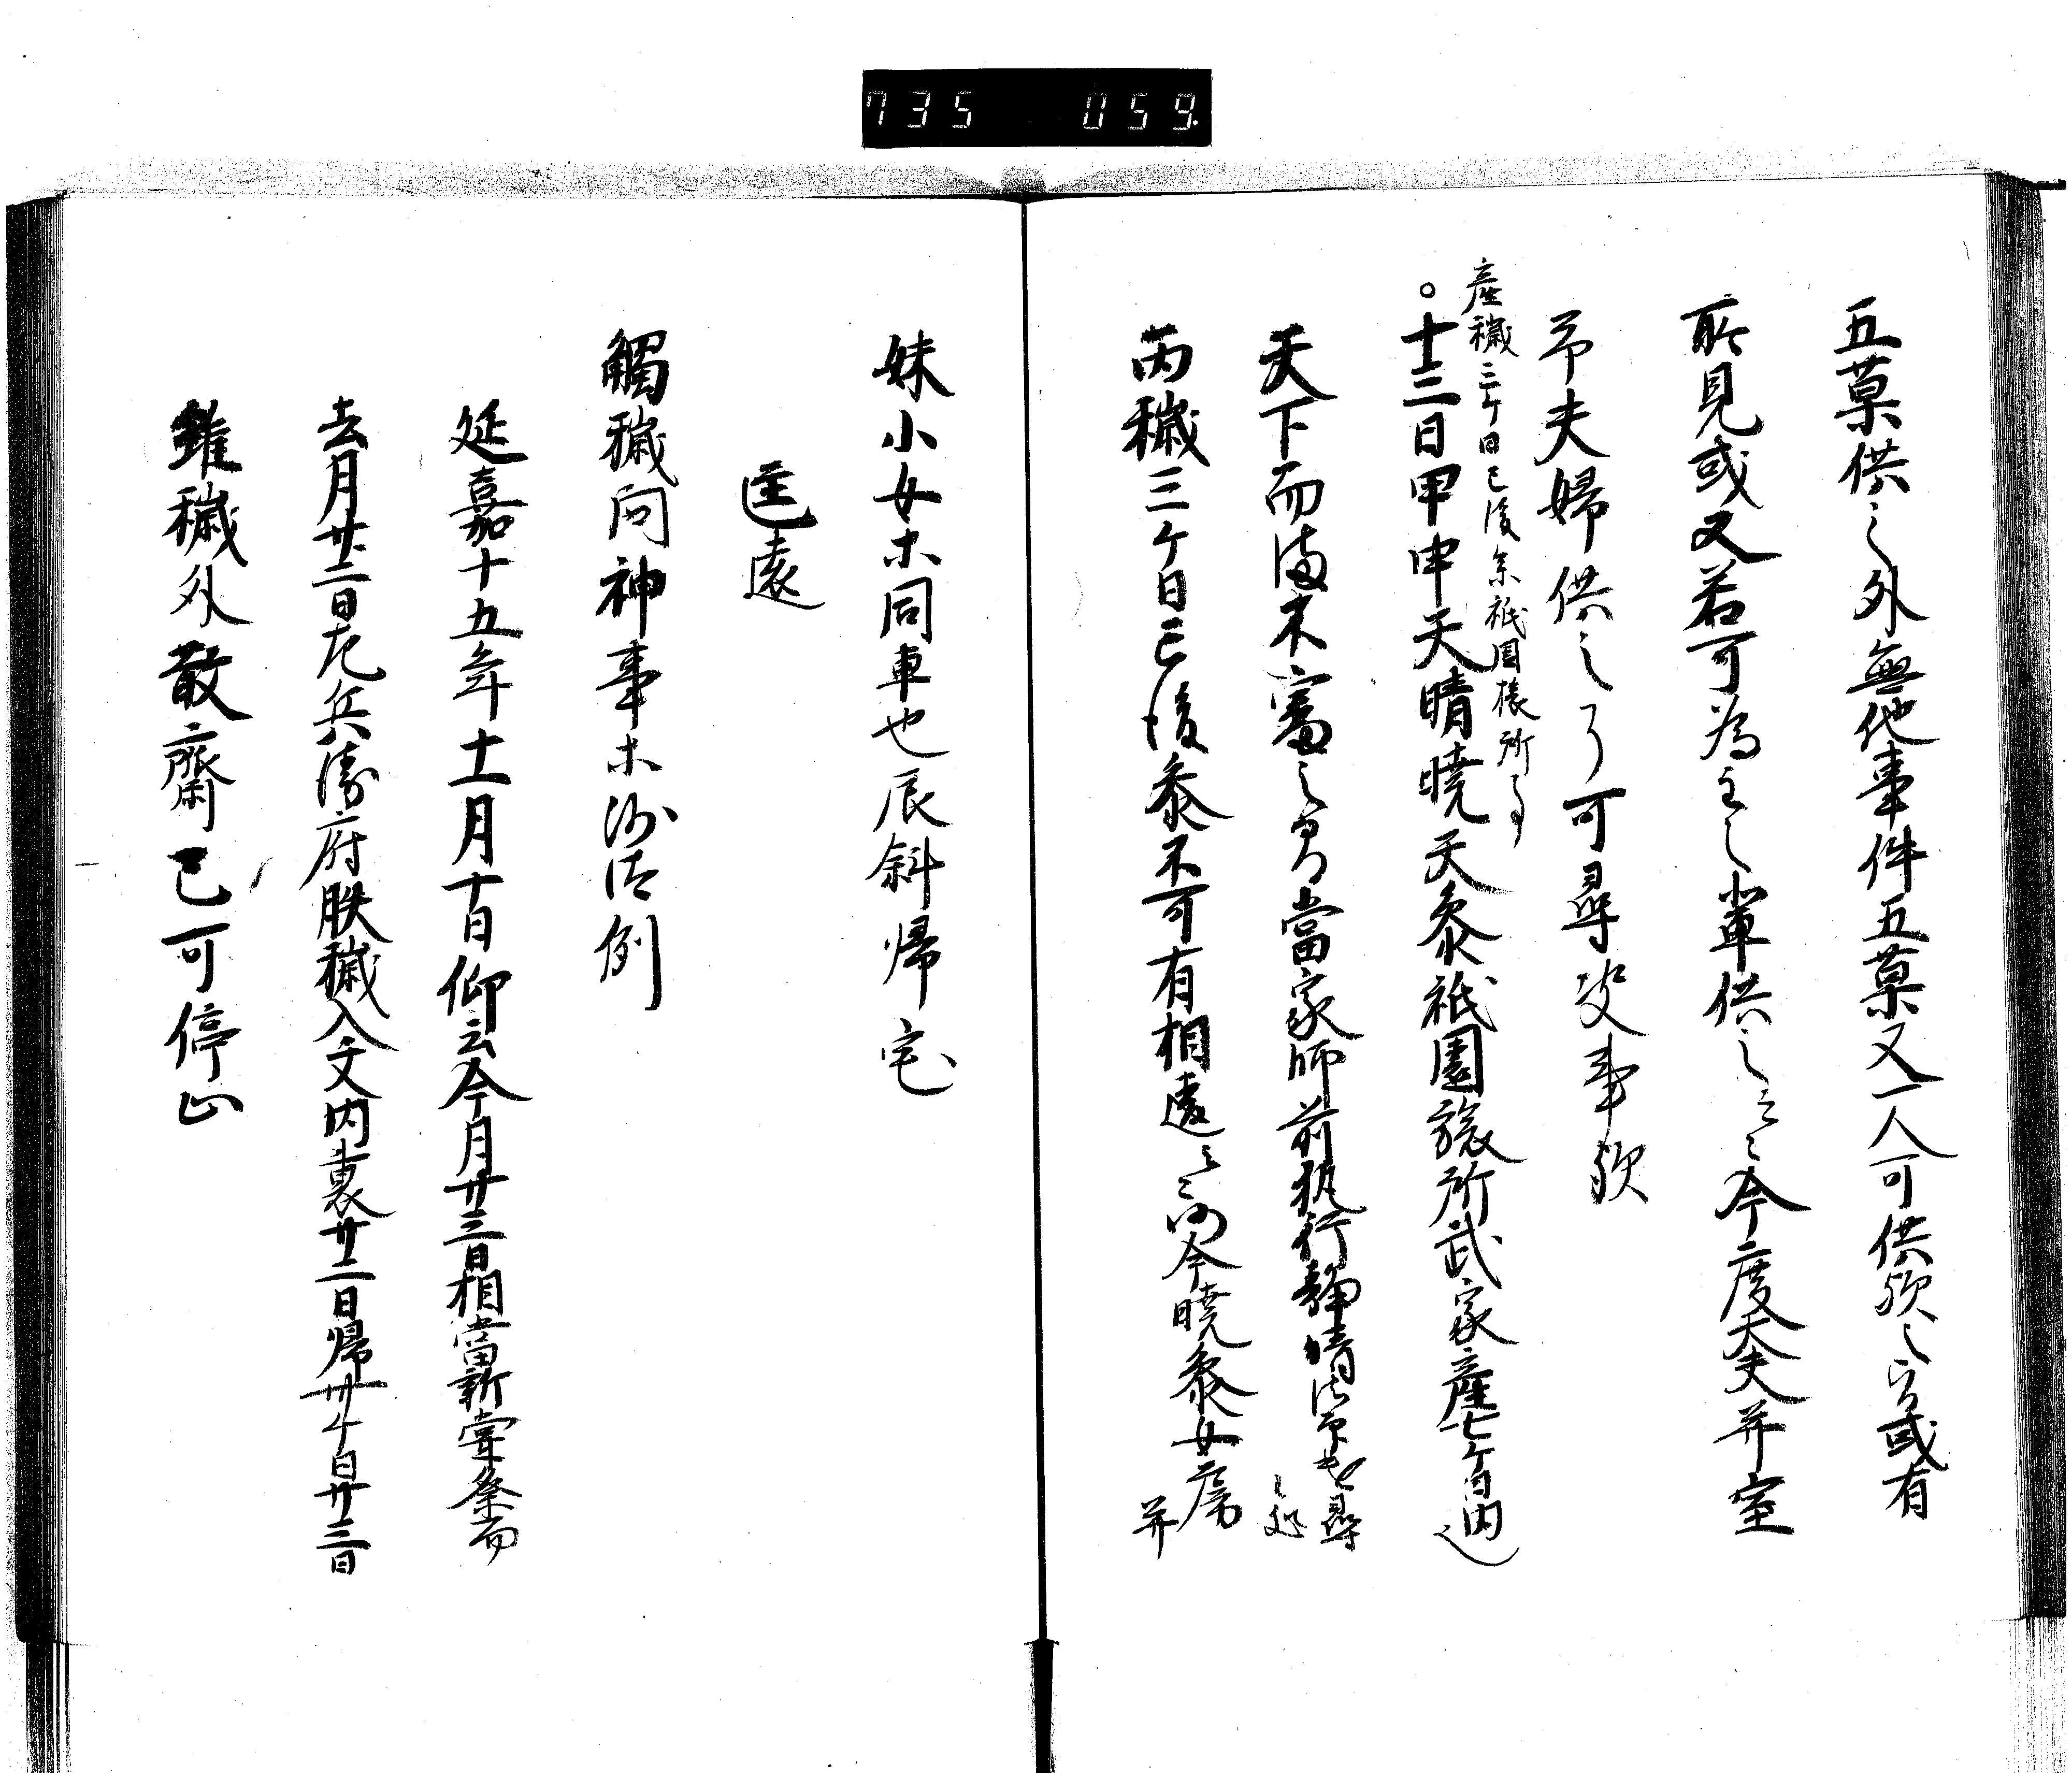 735 059
五菓供之外無他事件五菓又一人可供歟之由或有
所見或又若可為主之輩供之云々今度大夫并室
予夫婦供之了可尋決事歟
産穢三ケ日已後参祇園旅所事
○十二日甲申天晴暁天参祇園旅所武家産七ケ日内也
天下而満不審之間當家師前執行静晴法印尋之処
丙穢三ケ日已後参不可有相違云々仍今暁参女房并
妹小女ホ同車也辰斜帰宅
匡遠
觸穢間神事ホ沙汰例
延嘉十五年十一月十日仰云今月廿三日相當新嘗祭而
去月廿二日左兵衛府胅穢入交内裏廿二日帰卅ケ日廿三日
雖穢外散齋已可停止